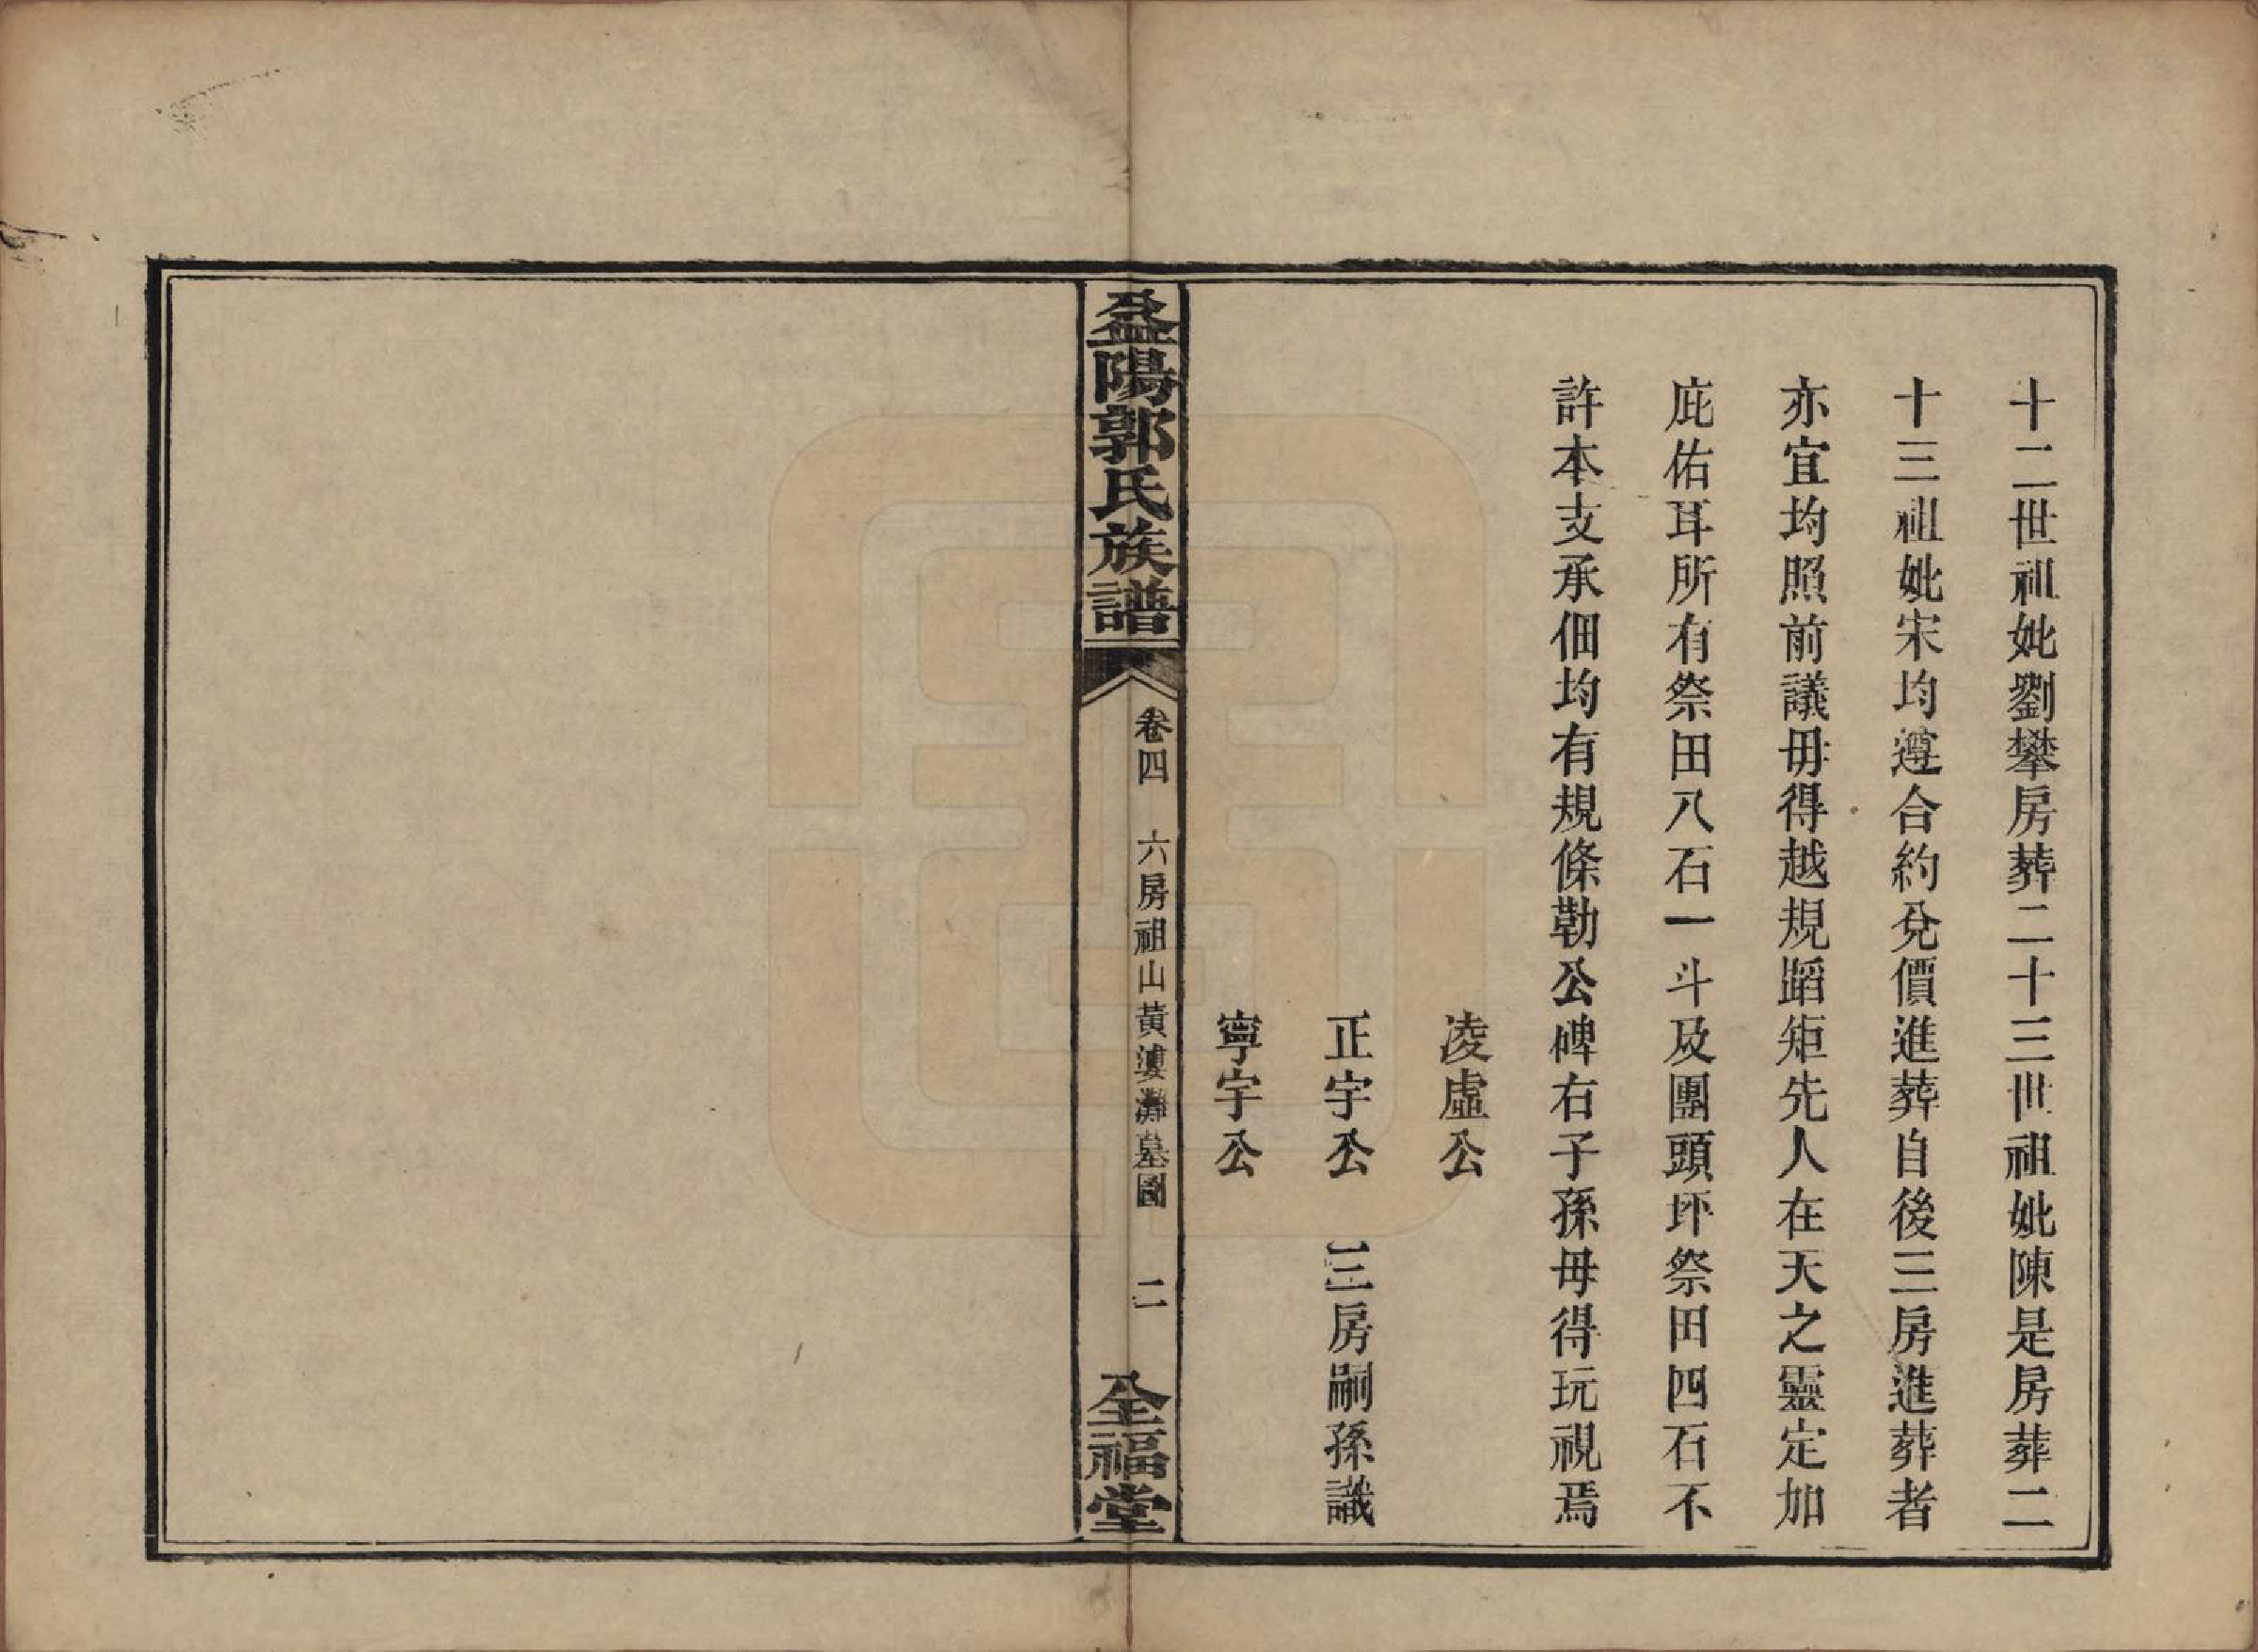 十二世祖妣劉攀房葬二十三世祖妣陳是房葬二
十三祖妣宋均遵合約兌價進葬自後三房進葬者
亦宜均照前議毋得越規蹈矩先人在天之靈定加
庇佑耳所有祭田八石一斗及團頭坏祭田四石不
許本支承佃均有規條勒公碑右子孫毋得玩視焉
凌虛公
正宇公　三房嗣孫識
寧宇公
益陽郭氏族譜
卷四　六房祖山黃婆灘墓圖　二
全福堂